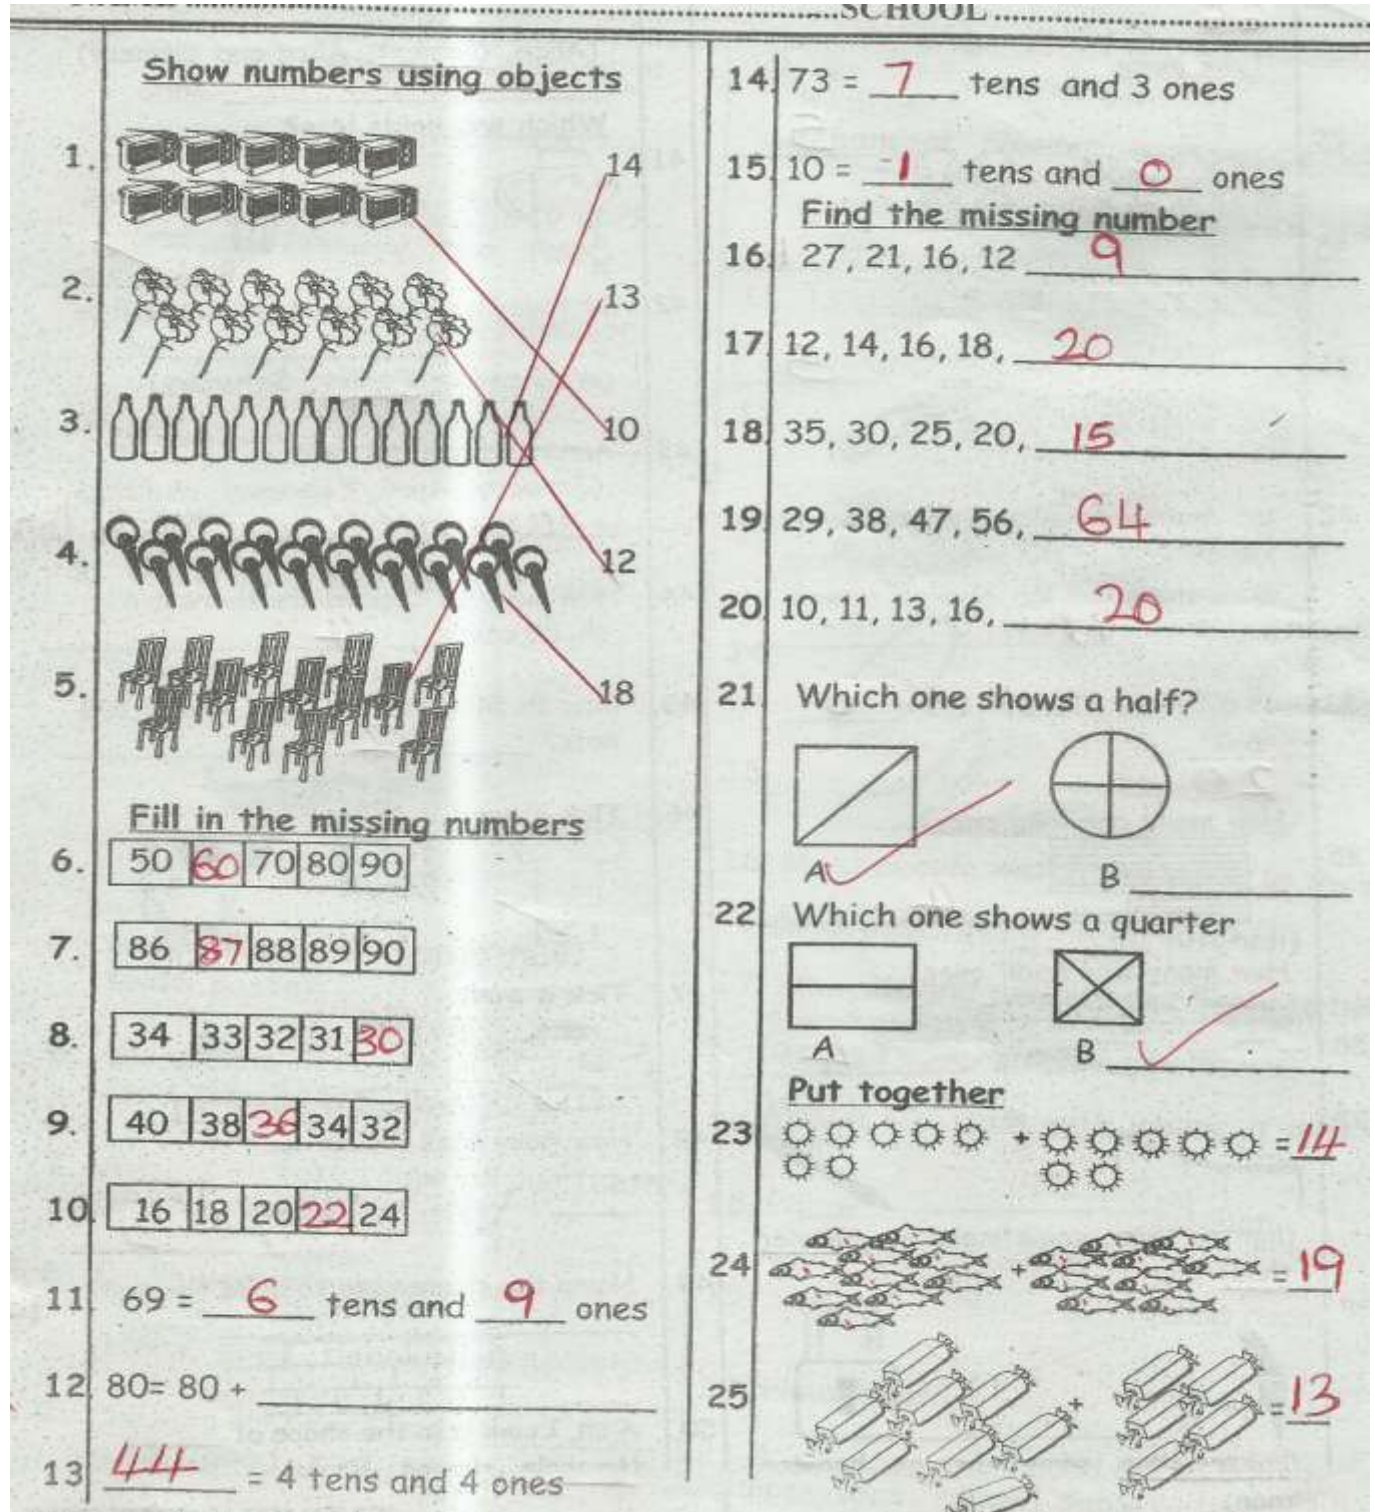 SCHOOL
Show numbers using objects
1.
14
2.
13
3.
10
4.
12
5.
18
Fill in the missing numbers
6. 50 60 70 80 90
7. 86 87 88 89 90
8. 34 33 32 31 30
9. 40 38 36 34 32
10 16 18 20 22 24
11 69 = 6 tens and 9 ones
12 80= 80 + ____
13 44 = 4 tens and 4 ones
14 73 = 7 tens and 3 ones
15 10 = 1 tens and 0 ones
Find the missing number
16. 27, 21, 16, 12 9
17 12, 14, 16, 18, 20
18 35, 30, 25, 20, 15
19 29, 38, 47, 56, 64
20 10, 11, 13, 16, 20
21 Which one shows a half?
A B ____
22 Which one shows a quarter
A B ____
Put together
23 + = 14
24 + = 19
25 + = 13